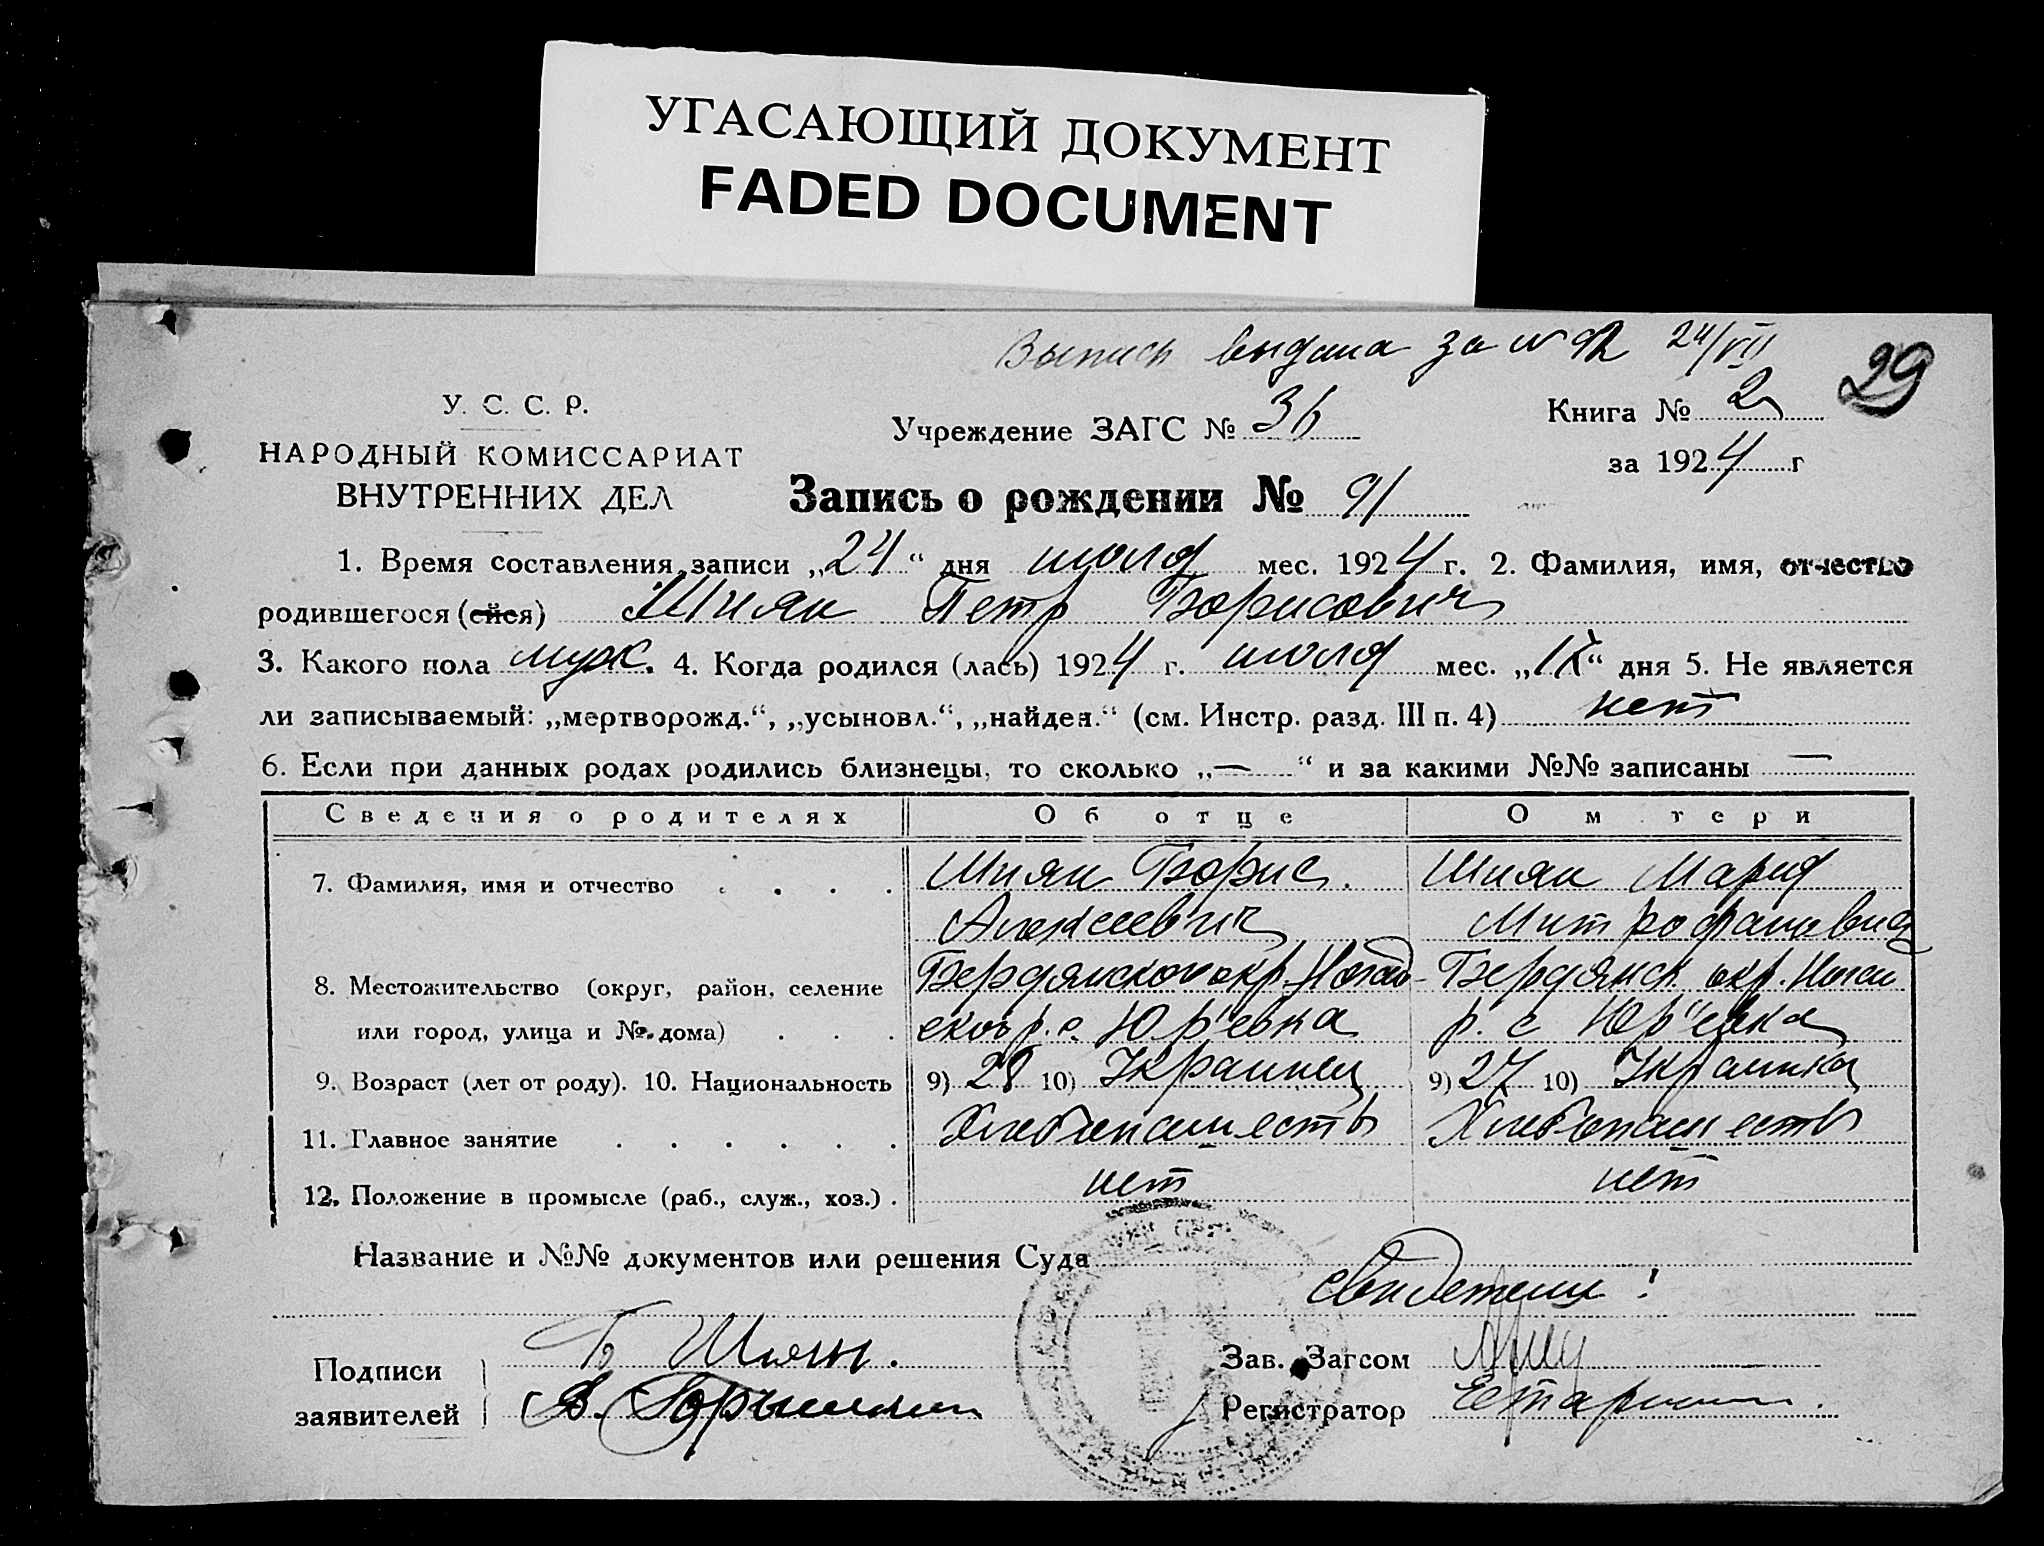 УГАСАЮЩИЙ ДОКУМЕНТ
FADED DOCUMENT
Выпись выдана за № 92 24/VII
29
У. С. С. Р.
НАРОДНЫЙ КОМИССАРИАТ
ВНУТРЕННИХ ДЕЛ
Учреждение ЗАГС № 36
Книга № 2
за 1924 г
Запись о рождении № 91
1. Время составления записи „24“ дня июля мес. 1924 г. 2. Фамилия, имя, отчество
родившегося (ейся) Шиян Петр Борисович
3. Какого пола муж. 4. Когда родился (лась) 1924 г. июля мес. „IX“ дня 5. Не является
ли записываемый: „мертворожд.“, „усыновл.“, „найден.“ (см. Инстр. разд. III п. 4) нет
6. Если при данных родах родились близнецы, то сколько „—“ и за какими №№ записаны —
Сведения о родителях Об отце О м тери
7. Фамилия, имя и отчество Шиян Борис Шиян Мария
Алексеевич Митрофановна
8. Местожительство (округ, район, селение Бердянского окр. Ногай- Бердянск окр. Ногай
или город, улица и № дома) ского р. с. Юр'евка р. с Юр'евка
9. Возраст (лет от роду). 10. Национальность 9) 28 10) Украинец 9) 27 10) Украинка
11. Главное занятие Хлебопашеств Хлебопашеств
12. Положение в промысле (раб., служ., хоз.) нет нет
Название и №№ документов или решения Суда
свидетели!
Подписи
заявителей
Б Шиян.
Зав. Загсом
Регистратор